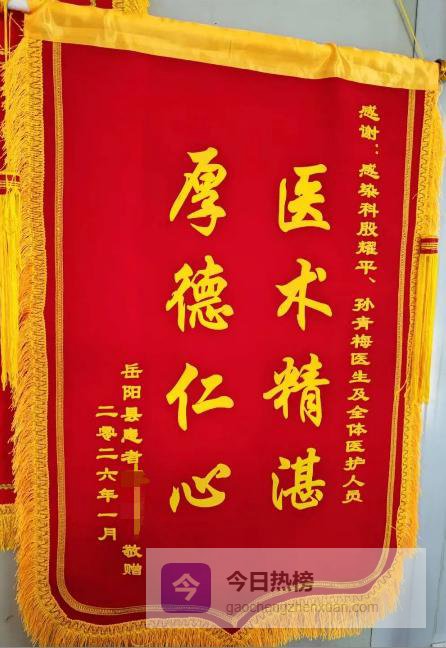 感谢：感染科殷耀平、孙青梅医生及全体医护人员
医术精湛
厚德仁心
岳阳县患者 敬赠
二零二六年一月
今
今日热榜
gaochengzhenxuan.com